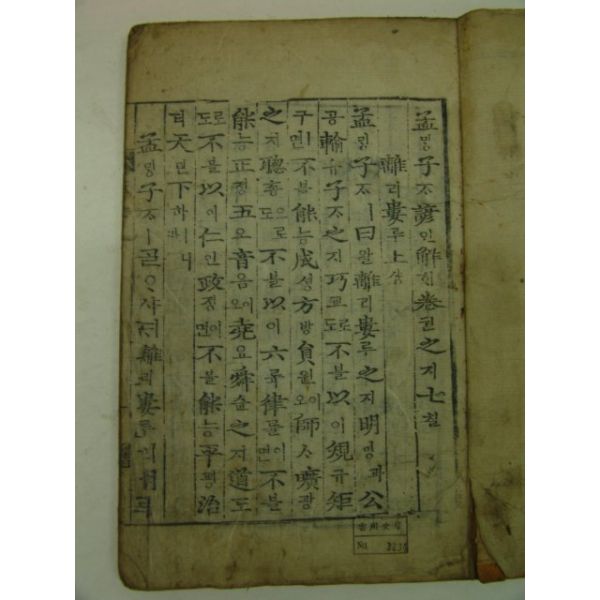 孟ᄆᆡᆼ子ᄌᆞ諺언解ᄒᆡ卷권之지七칠
離리婁루上샹
孟ᄆᆡᆼ子ᄌᆞㅣ曰왈離리婁루之지明명과公
공輸슈子ᄌᆞ之지巧교로도不불以이規규矩
구ㅣ면不불能능成셩方방員원이오師ᄉᆞ曠광
之지聰총으로도不불以이六륙律률이면不불
能능正졍五오音음이오堯요舜슌之지道도
로도不불以이仁인政졍이면不불能능平평治
티天텬下하ㅣ니라
孟ᄆᆡᆼ子ᄌᆞㅣᄀᆞᆯᄋᆞ샤ᄃᆡ離리婁루의
No